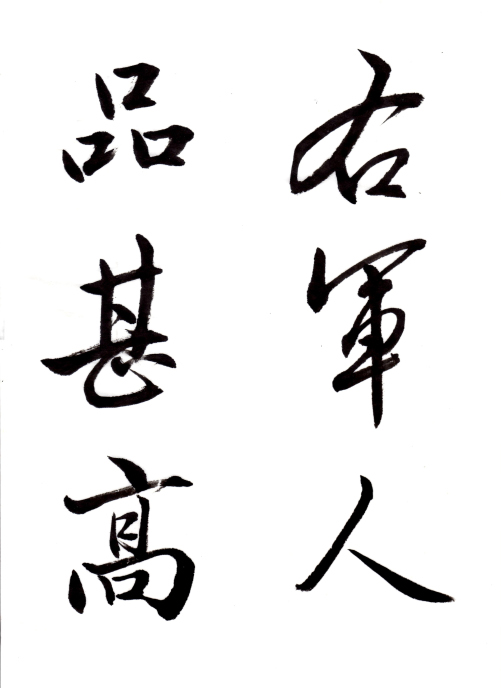 右軍人
品甚髙